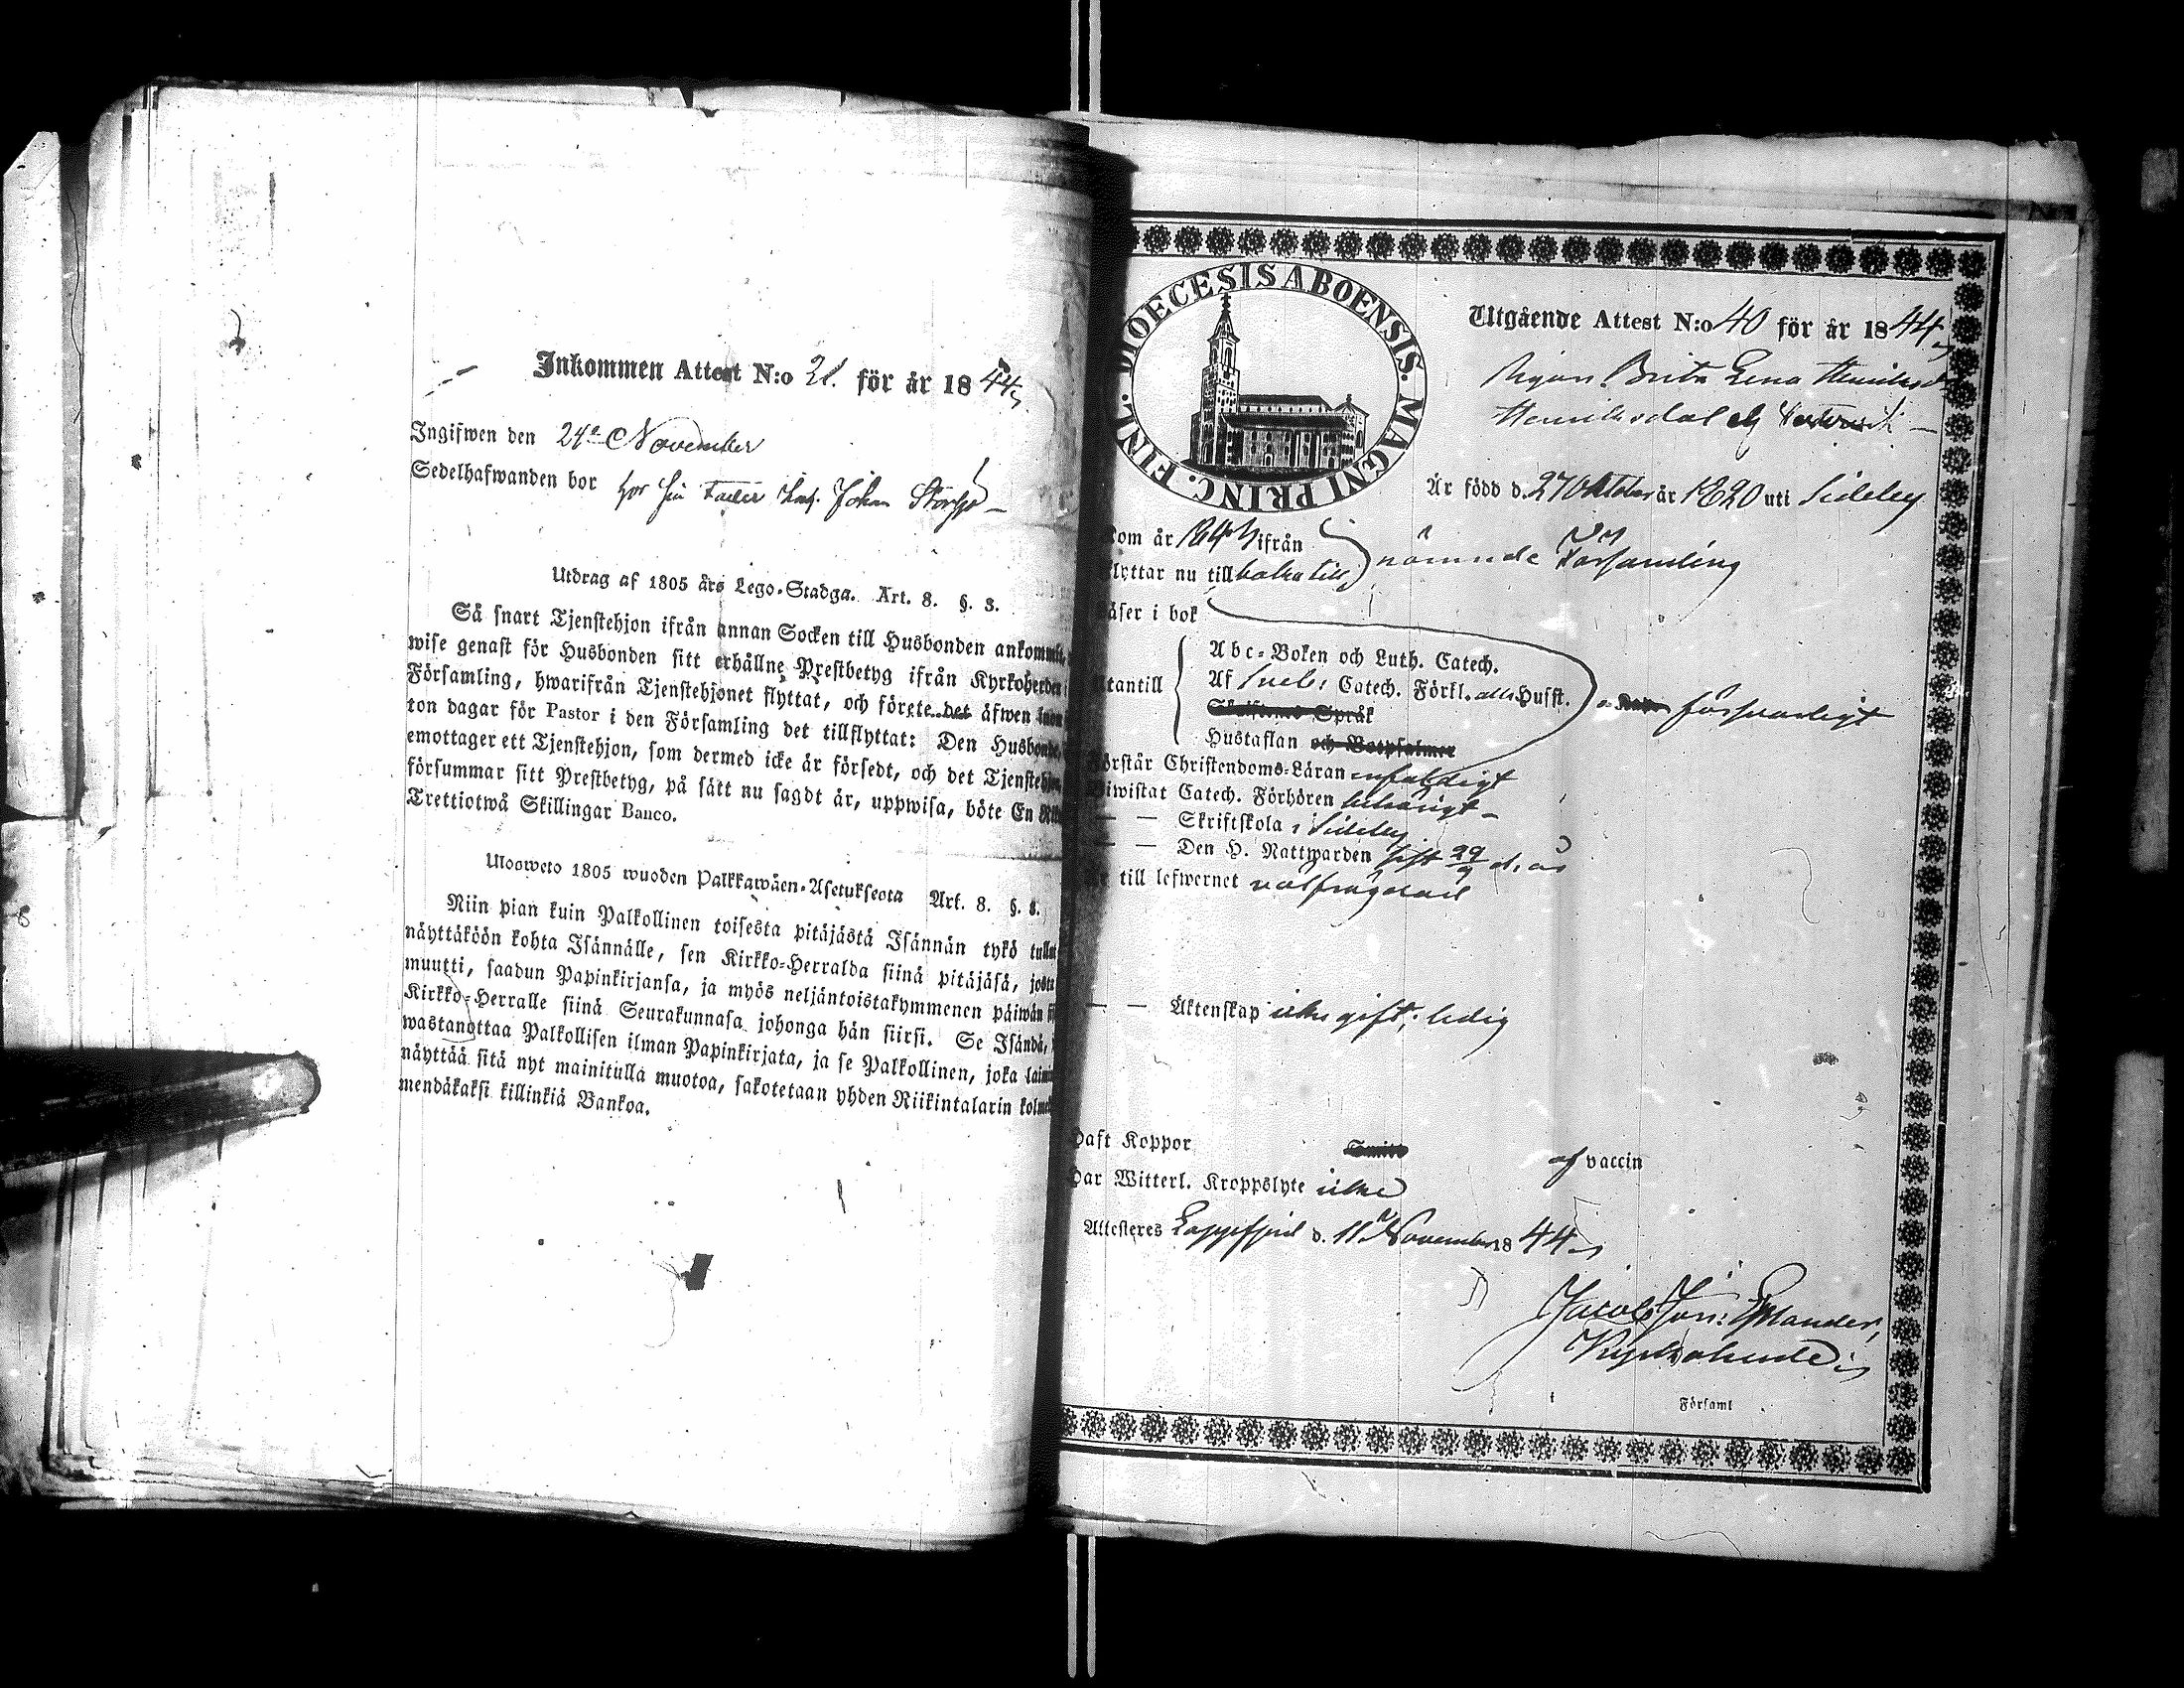 Inkommen Attest N:o 21. för år 1844
Ingifwen den 24de November
Sedelhafwanden bor hos sin Fader Johan
Utdrag af 1805 års Lego-Stadga. Art. 8. §. 3.
Så snart Tjenstehjon ifrån annan Socken till Husbonden ankommit,
wise genast för Husbonden sitt erhållne Prestbetyg ifrån Kyrkoherden i
Församling, hwarifrån Tjenstehjonet flyttat, och förete det äfwen inom
ton dagar för Pastor i den Församling det tillflyttat: Den Husbonde,
emottager ett Tjenstehjon, som dermed icke är försedt, och det Tjenstehjon,
försummar sitt Prestbetyg, på sätt nu sagdt är, uppwisa, böte En
Trettiotwå Skillingar Banco.
Ulosweto 1805 wuoden Palkkawäen-Asetuksesta Art. 8. §. 3.
Niin pian kuin Palkollinen toisesta pitäjästä Isännän tykö tullut
näyttäköön kohta Isännälle, sen Kirkko-Herralda siinä pitäjäsä, josta
muutti, saadun Papinkirjansa, ja myös neljäntoistakymmenen päiwän
Kirkko-Herralle siinä Seurakunnasa johonga hän siirsi. Se Isändä,
wastanottaa Palkollisen ilman Papinkirjata, ja se Palkollinen, joka
näyttää sitä nyt mainitulla muotoa, sakotetaan yhden Riikintalarin
mendäkaksi killinkiä Bankoa.
DIOECESIS ABOENSIS. MAGNI PRINC. FINL.
Utgående Attest N:o 40 för år 1844
Pigan Brita Lena Henriksdr
Henriksdal
Är född d. 27 Oktober år 1820 uti Sideby
Kom år ifrån
flyttar nu till baka till nämnde Församling
Läser i bok
Utantill
Abc-Boken och Luth. Catech.
Af Sueb: Catech. Förkl. Hufst.
Skriftenes Språk
Hustaflan och Botpsalmer
försvarligt
Förstår Christendoms-Läran enfaldigt
Biwistat Catech. Förhören behörigt
— — Skriftskola i Sideby
— — Den H. Nattwarden sist 29/9 d. år
Är till lefwernet välfrägdad
— — Äktenskap icke gift, ledig
Haft Koppor af vaccin
Har Witterl. Kroppslyte icke
Attesteres Lappfjerd d. 11 November 1844
Jacob Jon:
Kyrkoherde i
Församl